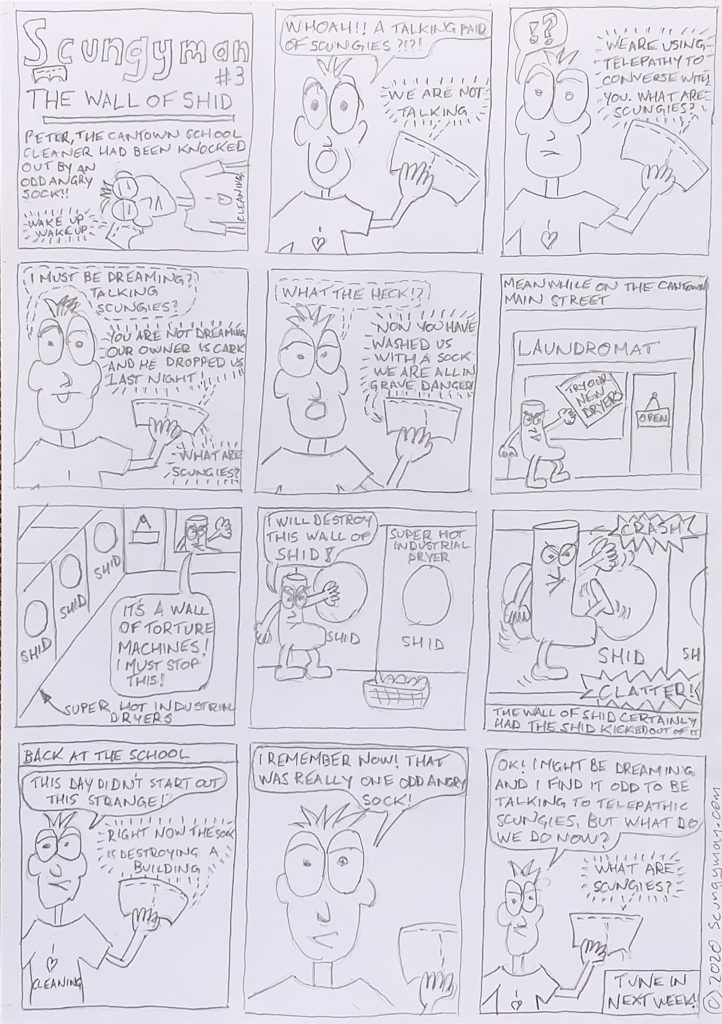 Scungyman
#3
THE WALL OF SHID
PETER, THE CANTOWN SCHOOL
CLEANER HAD BEEN KNOCKED
OUT BY AN
ODD ANGRY
SOCK!!
WAKE UP
WAKE UP
CLEANING
WHOAH!! A TALKING PAIR
OF SCUNGIES ?!?!
WE ARE NOT
TALKING
!?
WE ARE USING
TELEPATHY TO
CONVERSE WITH
YOU. WHAT ARE
SCUNGIES?
I MUST BE DREAMING?
TALKING
SCUNGIES?
YOU ARE NOT DREAMING
OUR OWNER IS CARK
AND HE DROPPED US
LAST NIGHT!
WHAT ARE
SCUNGIES?
WHAT THE HECK!?
NOW YOU HAVE
WASHED US
WITH A SOCK
WE ARE ALL IN
GRAVE DANGER!
MEANWHILE ON THE CANTOWN
MAIN STREET
LAUNDROMAT
TRY OUR
NEW
DRYERS
OPEN
SHID
SHID
SHID
SHID
IT'S A WALL
OF TORTURE
MACHINES!
I MUST STOP
THIS!
SUPER HOT INDUSTRIAL
DRYERS
I WILL DESTROY
THIS WALL OF
SHID!
SUPER HOT
INDUSTRIAL
DRYER
SHID
SHID
CRASH
SHID
SH
CLATTER!
THE WALL OF SHID CERTAINLY
HAD THE SHID KICKED OUT OF IT
BACK AT THE SCHOOL
THIS DAY DIDN'T START OUT
THIS STRANGE!
RIGHT NOW THE SOCK
IS DESTROYING A
BUILDING
CLEANING
I REMEMBER NOW! THAT
WAS REALLY ONE ODD ANGRY
SOCK!
OK! I MIGHT BE DREAMING
AND I FIND IT ODD TO BE
TALKING TO TELEPATHIC
SCUNGIES, BUT WHAT DO
WE DO NOW?
WHAT ARE
SCUNGIES?
TUNE IN
NEXT WEEK!
© 2020 Scungyman.com